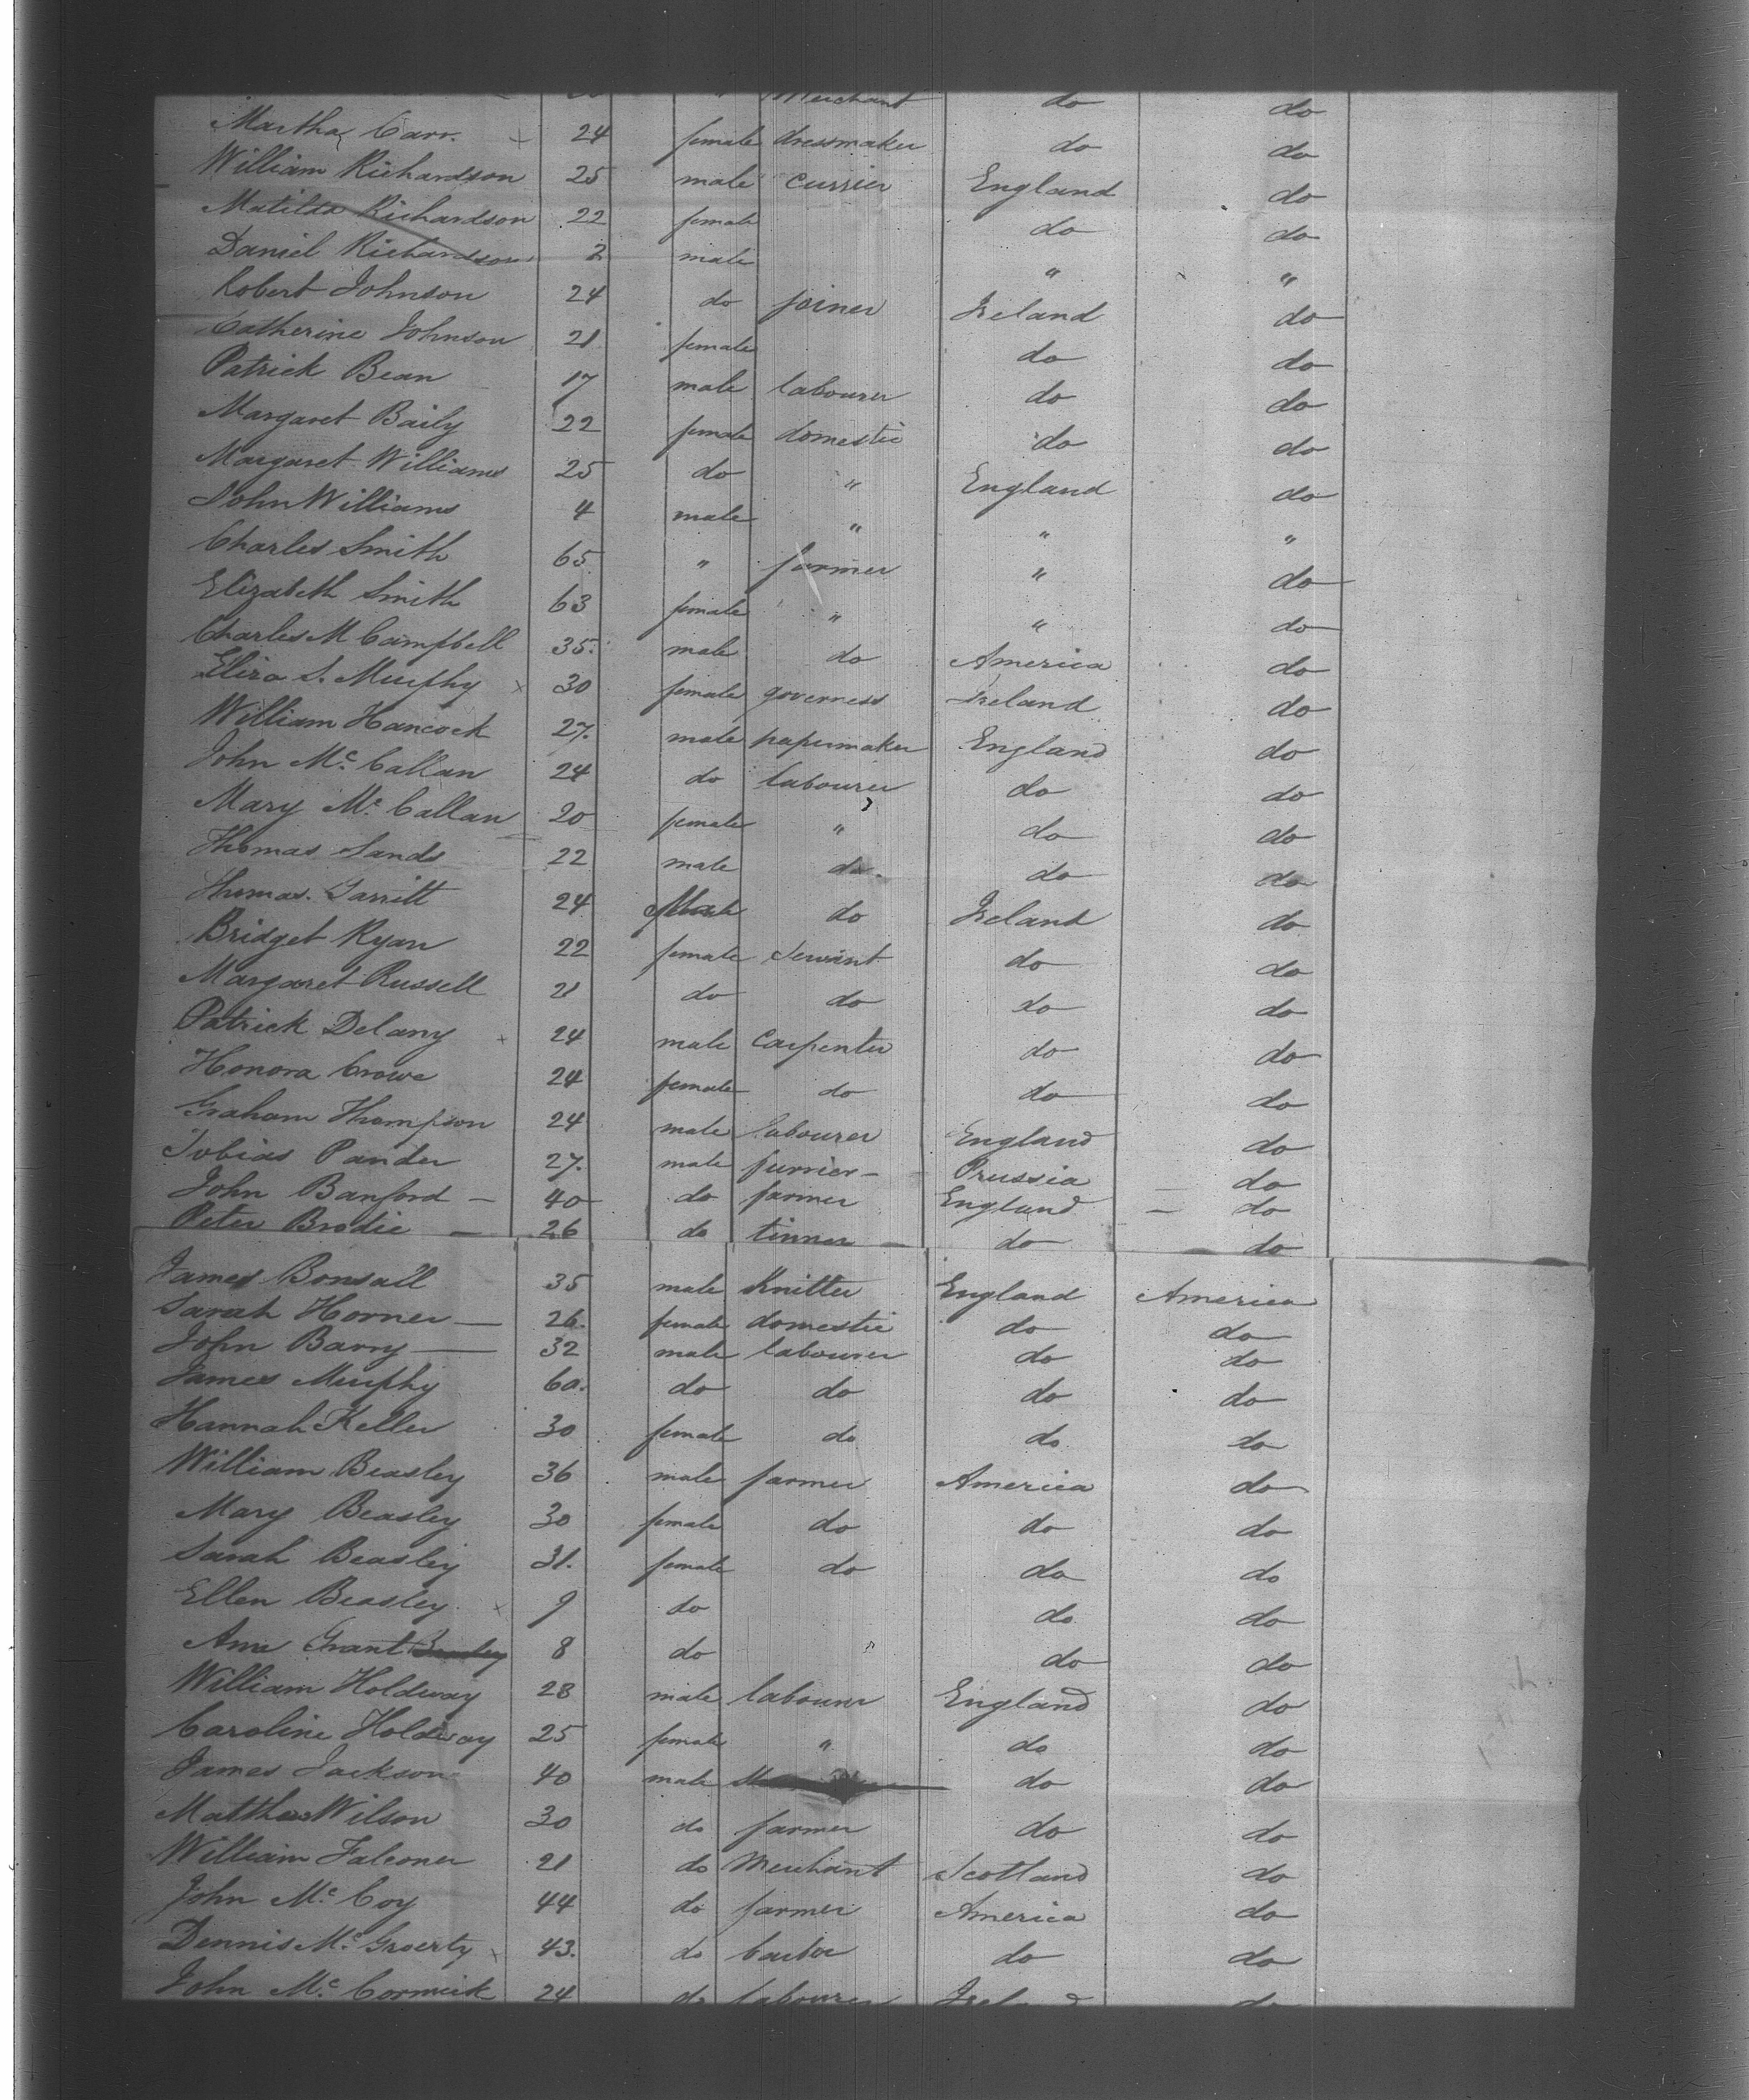 Merchant do do
Martha Carr. 24 female dressmaker do do
William Richardson 25 male currier England do
Matilda Richardson 22 female do do
Daniel Richardson 2 male " "
Robert Johnson 24 do joiner Ireland do
Catherine Johnson 21 female do do
Patrick Bean 17 male labourer do do
Margaret Baily 22 female domestic do do
Margaret Williams 25 do " England do
John Williams 4 male " " "
Charles Smith 65 " farmer " do
Elizabeth Smith 63 female " " do
Charles M Campbell 35. male do America do
Eliza S. Murphy 30 female governess Ireland do
William Hancock 27. male papermaker England do
John Mc Callan 24 do labourer do do
Mary Mc Callan 20 female " do do
Thomas Sands 22 male do. do do
Thomas. Garritt 24 do Ireland do
Bridget Ryan 22 female Servant do do
Margaret Russell 21 do do do do
Patrick Delany 24 male Carpenter do do
Honora Crowe 24 female do do do
Graham Thompson 24 male labourer England do
Tobias Pander 27. male furrier - Prussia do
John Banford - 40 do farmer England - do
Peter Brodie - 26 do tinner do do
James Bonsall 35 male Knitter England America
Sarah Horner - 26. female domestic do do
John Barry - 32 male labourer do do
James Murphy 60. do do do do
Hannah Keller 30 female do do do
William Beasley 36 male farmer America do
Mary Beasley 30 female do do do
Sarah Beasley 31. female do do do
Ellen Beasley 9 do do do
Ann Grant 8 do do do
William Holdway 28 male labourer England do
Caroline Holdway 25 female " do do
James Jackson 40 male do do
Matthew Wilson 30 do farmer do do
William Falconer 21 do Merchant Scotland do
John Mc Coy 44 do farmer America do
Dennis Mc Groerty 43. do do do
John Mc Cormick 24 do labourer Ireland do